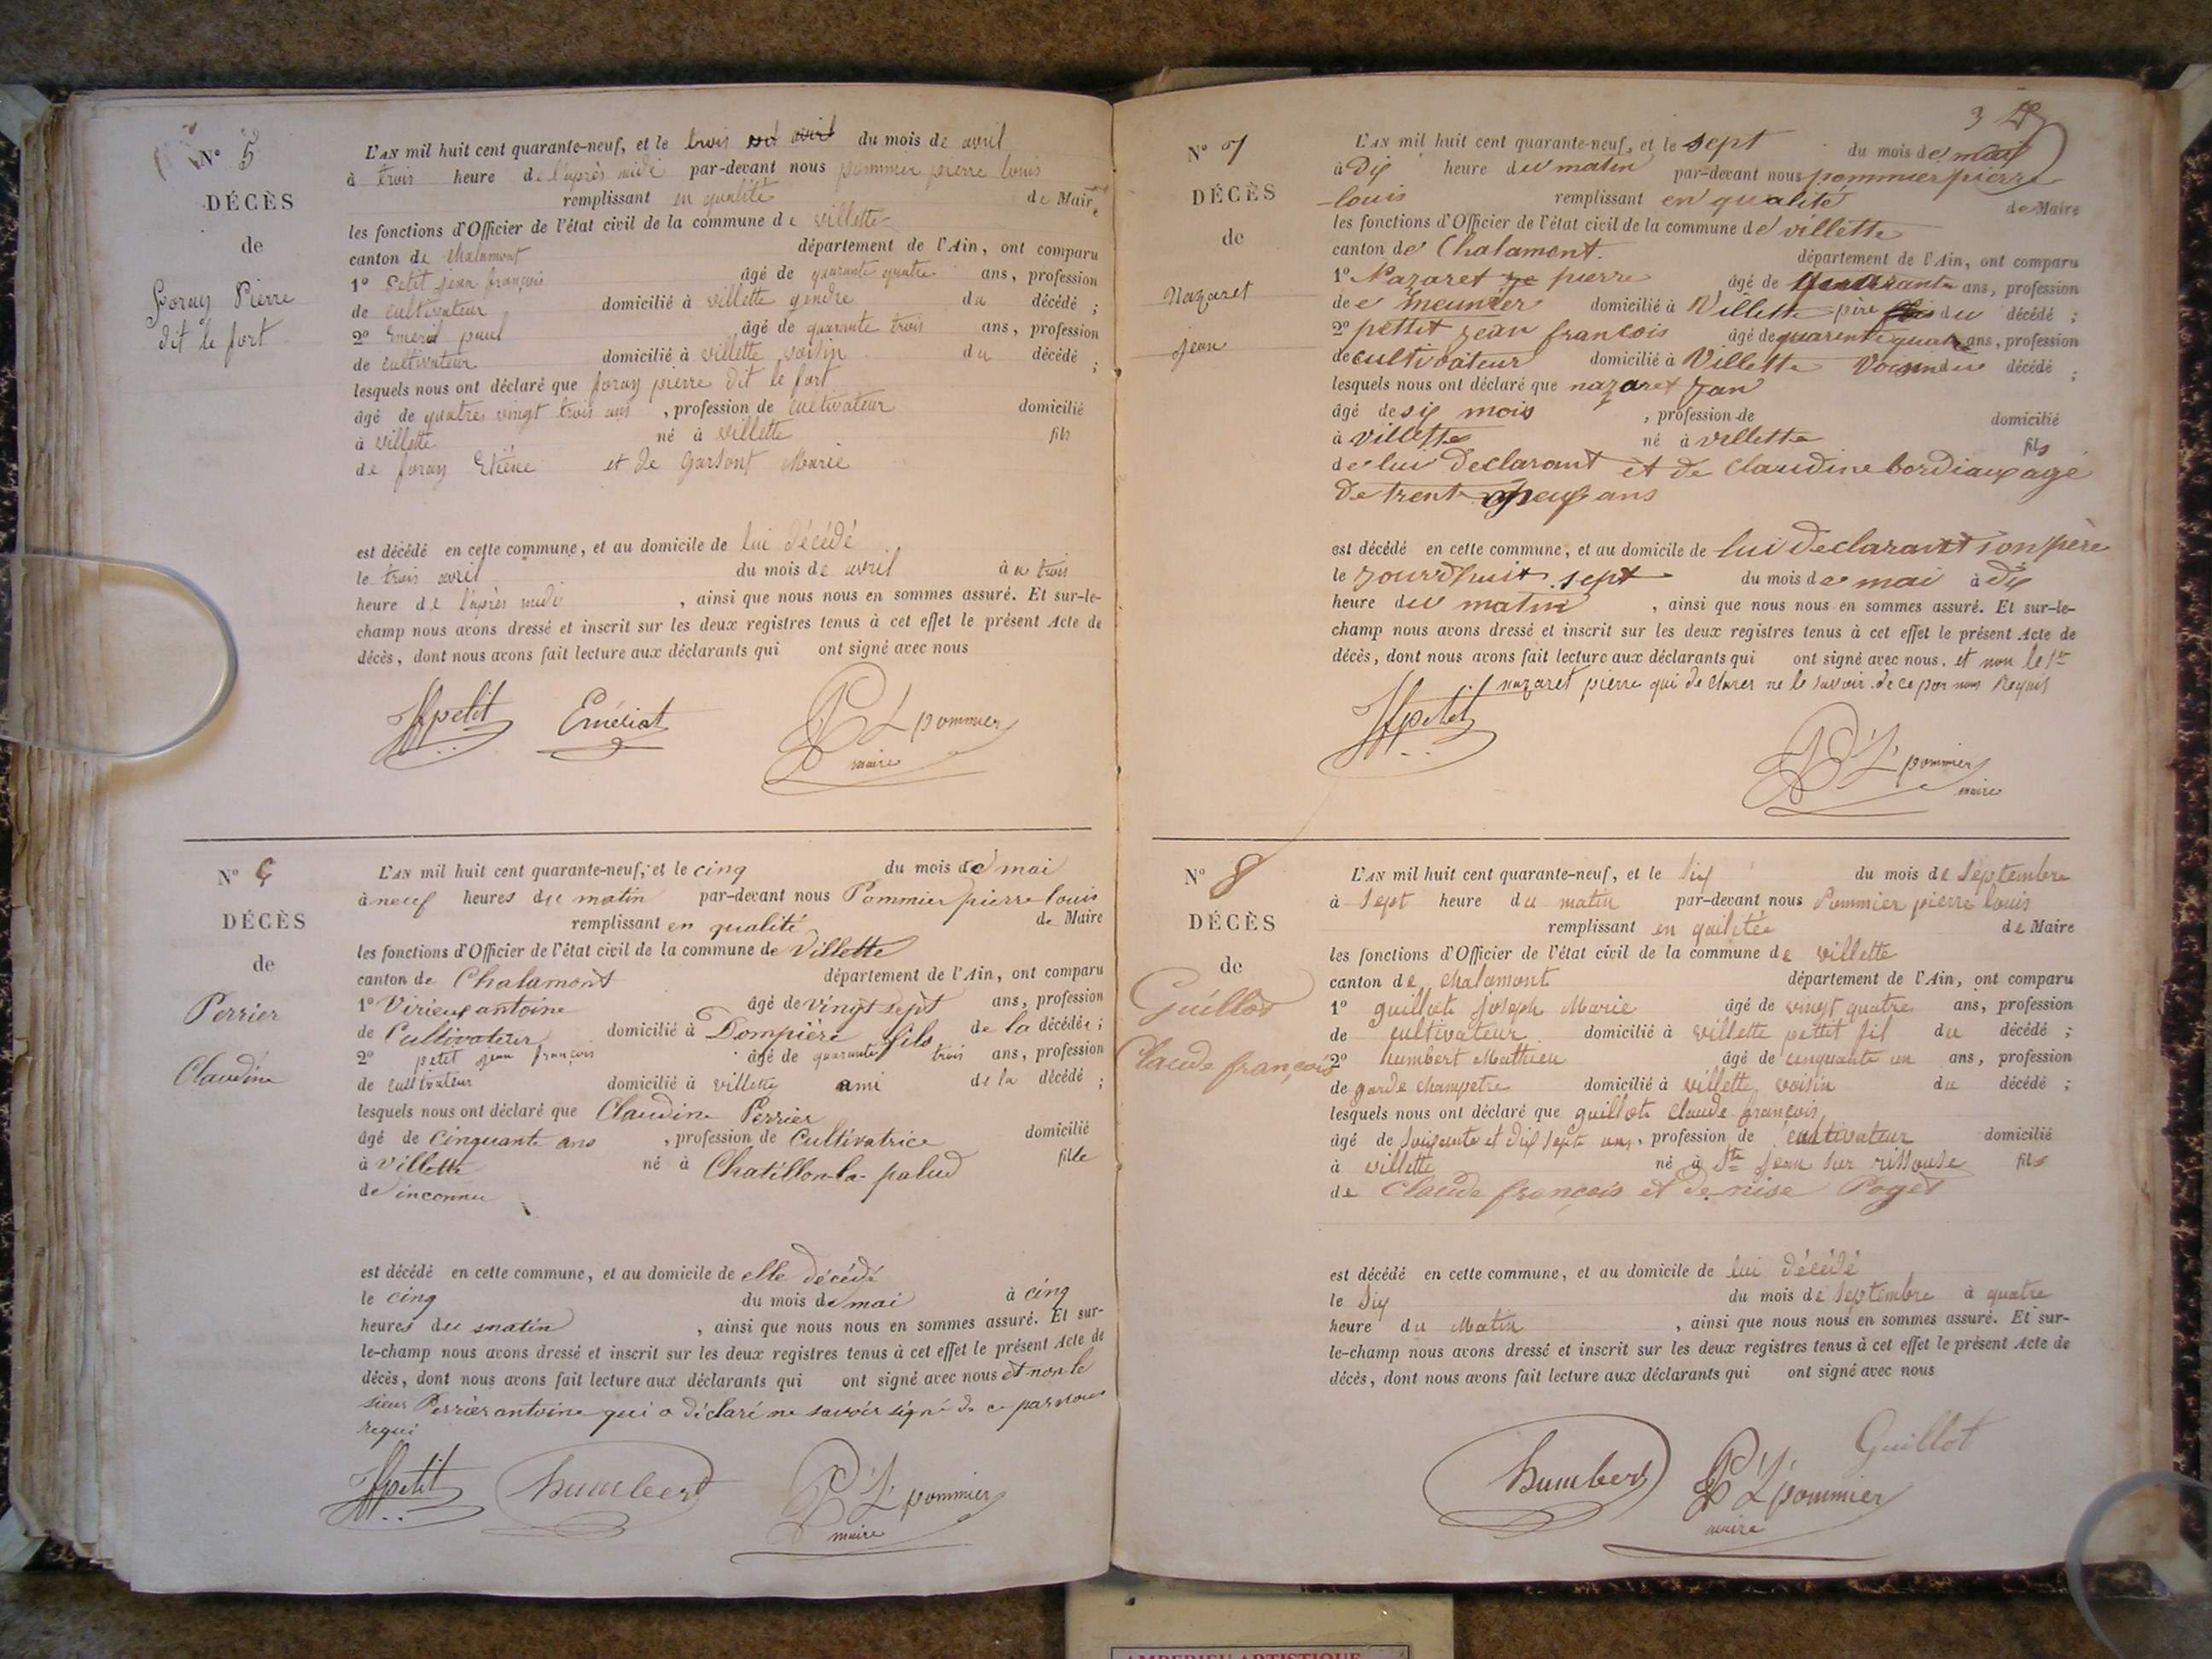 N° 5
DÉCÈS
de
foray Pierre
dit le fort
L'AN mil huit cent quarante-neuf, et le trois avril du mois de avril
à trois heure de l'après midi par-devant nous pommier pierre louis
remplissant en qualité de Maire
les fonctions d'Officier de l'état civil de la commune de villette
canton de chalamont département de l'Ain, ont comparu
1° Petit jean françois âgé de quarante quatre ans, profession
de cultivateur domicilié à villette gendre du décédé ;
2° paul âgé de quarante trois ans, profession
de cultivateur domicilié à villette voisin du décédé ;
lesquels nous ont déclaré que foray pierre dit le fort
âgé de quatres vingt trois ans , profession de cultivateur domicilié
à villette né à villette fils
de foray Etiène et de garsont Marie
est décédé en cette commune, et au domicile de lui décédé
le trois avril du mois de avril à u trois
heure de l'après midi , ainsi que nous nous en sommes assuré. Et sur-le-
champ nous avons dressé et inscrit sur les deux registres tenus à cet effet le présent Acte de
décès, dont nous avons fait lecture aux déclarants qui ont signé avec nous
JF petit Emériat P L pommier
maire
N° 6
DÉCÈS
de
Perrier
Claudine
L'AN mil huit cent quarante-neuf, et le cinq du mois de mai
à neuf heures du matin par-devant nous Pommier pierre louis
remplissant en qualité de Maire
les fonctions d'Officier de l'état civil de la commune de Villette
canton de Chalamont département de l'Ain, ont comparu
1° Virieux antoine âgé de vingt sept ans, profession
de Cultivateur domicilié à Dompière fils de la décédée ;
2° petit jean françois âgé de quarante trois ans, profession
de cultivateur domicilié à villette ami de la décédé ;
lesquels nous ont déclaré que Claudine Perrier
âgé de cinquante ans , profession de Cultivatrice domicilié
à villette né à Chatillon-la-palud fille
de inconnu
est décédé en cette commune, et au domicile de elle décédé
le cinq du mois de mai à cinq
heures du matin , ainsi que nous nous en sommes assuré. Et sur-
le-champ nous avons dressé et inscrit sur les deux registres tenus à cet effet le présent Acte de
décès, dont nous avons fait lecture aux déclarants qui ont signé avec nous et non le
sieur Perrier antoine qui a déclaré ne savoir signé de ce par nous
requi
JF petit humbert P L pommier
maire
3
N° 7
DÉCÈS
de
Nazaret
jean
L'AN mil huit cent quarante-neuf, et le sept du mois de mai
à Dix heure du matin par-devant nous pommier pierre
-louis remplissant en qualité de Maire
les fonctions d'Officier de l'état civil de la commune de villette
canton de Chalamont. département de l'Ain, ont comparu
1° Nazaret pierre âgé de quarante ans, profession
de meunier domicilié à Villette père du décédé ;
2° pettit jean francois âgé de quarente quatre ans, profession
de cultivateur domicilié à Villette Voisin du décédé ;
lesquels nous ont déclaré que nazaret Jean
âgé de six mois , profession de domicilié
à villette né à villette fils
de lui declarant et de Claudine bordiaux agé
de trent neuf ans
est décédé en cette commune, et au domicile de lui declarant son père
le jourdhuit sept du mois de mai à dix
heure du matin , ainsi que nous nous en sommes assuré. Et sur-le-
champ nous avons dressé et inscrit sur les deux registres tenus à cet effet le présent Acte de
décès, dont nous avons fait lecture aux déclarants qui ont signé avec nous. et non le sr
nazaret pierre qui declarer ne le savoir. de ce par nous Requis
JF petit
P L pommier
maire
N° 8
DÉCÈS
de
Guillot
Claude françois
L'AN mil huit cent quarante-neuf, et le six du mois de septembre
à sept heure du matin par-devant nous Pommier pierre louis
remplissant en qualitée de Maire
les fonctions d'Officier de l'état civil de la commune de villette
canton de chalamont département de l'Ain, ont comparu
1° guillot joseph Marie âgé de vingt quatre ans, profession
de cultivateur domicilié à villette pettit fil du décédé ;
2° humbert Mathieu âgé de cinquante un ans, profession
de garde champetre domicilié à villette voisin du décédé ;
lesquels nous ont déclaré que guillot claude françois
âgé de soixante et dix sept ans, profession de cultivateur domicilié
à villette né à Ste jean sur rissouse fils
de Claude françois et denise Poget
est décédé en cette commune, et au domicile de lui décédé
le six du mois de septembre à quatre
heure du Matin , ainsi que nous nous en sommes assuré. Et sur-
le-champ nous avons dressé et inscrit sur les deux registres tenus à cet effet le présent Acte de
décès, dont nous avons fait lecture aux déclarants qui ont signé avec nous
Guillot
humbert P L pommier
maire
AMBERIEU ARTISTIQUE